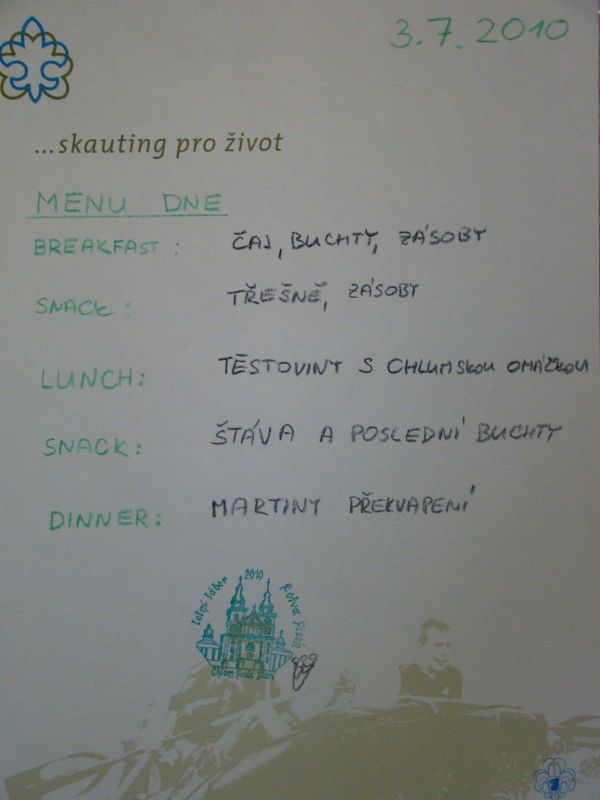 3.7.2010
...skauting pro život
MENU DNE
BREAKFAST: ČAJ, BUCHTY, ZÁSOBY
SNACK: TŘEŠNĚ, ZÁSOBY
LUNCH: TĚSTOVINY S CHLUMSKOU OMÁČKOU
SNACK: ŠTÁVA A POSLEDNÍ BUCHTY
DINNER: MARTINY PŘEKVAPENÍ
Letní tábor 2010